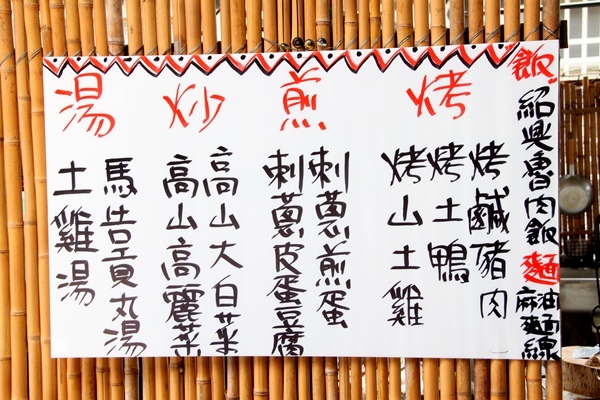 飯
紹興魯肉飯
麵
麻油麵線
烤
烤鹹豬肉
烤土鴨
烤山土雞
煎
刺蔥煎蛋
刺蔥皮蛋豆腐
炒
高山大白菜
高山高麗菜
湯
馬告貢丸湯
土雞湯